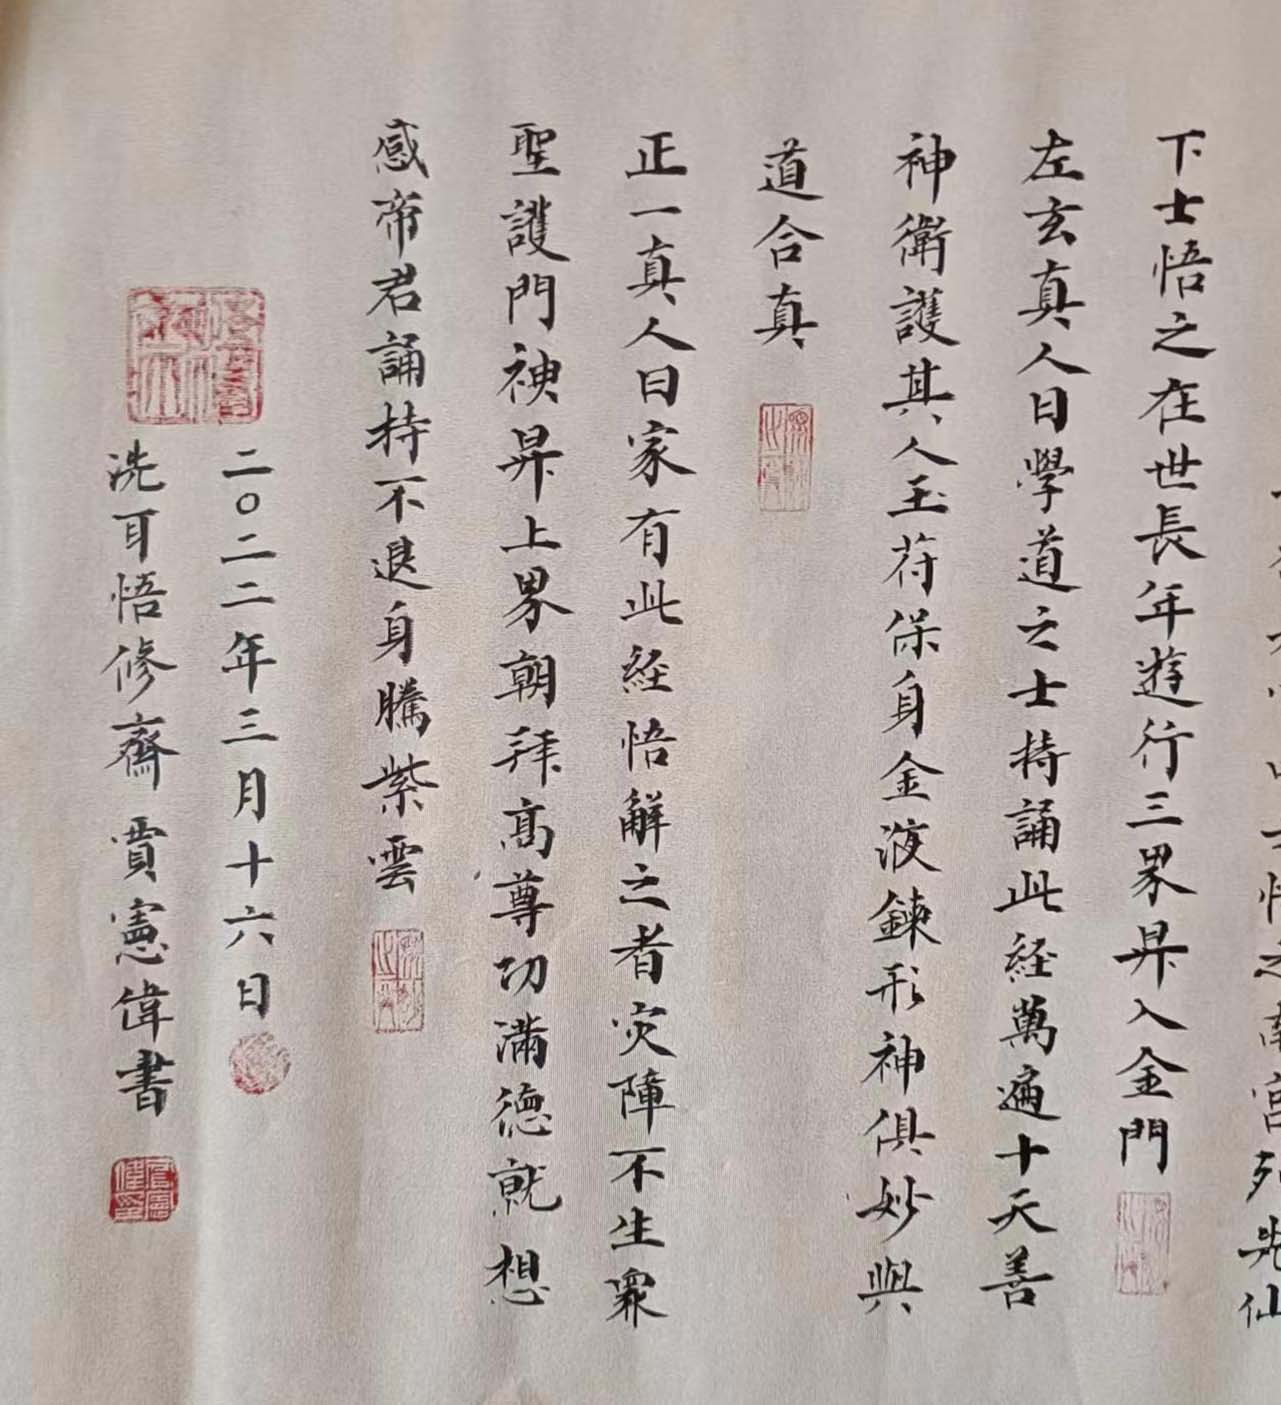 士悟之南宮列為仙
下士悟之在世長年遊行三界昇入金門
左玄真人曰學道之士持誦此経萬遍十天善
神衛護其人玉苻保身金液鍊形神俱妙與
道合真
正一真人曰家有此経悟解之者灾障不生衆
聖護門神昇上界朝拜高尊功滿德就想
感帝君誦持不退身騰紫雲
二〇二二年三月十六日
洗耳悟修齋賈憲偉書